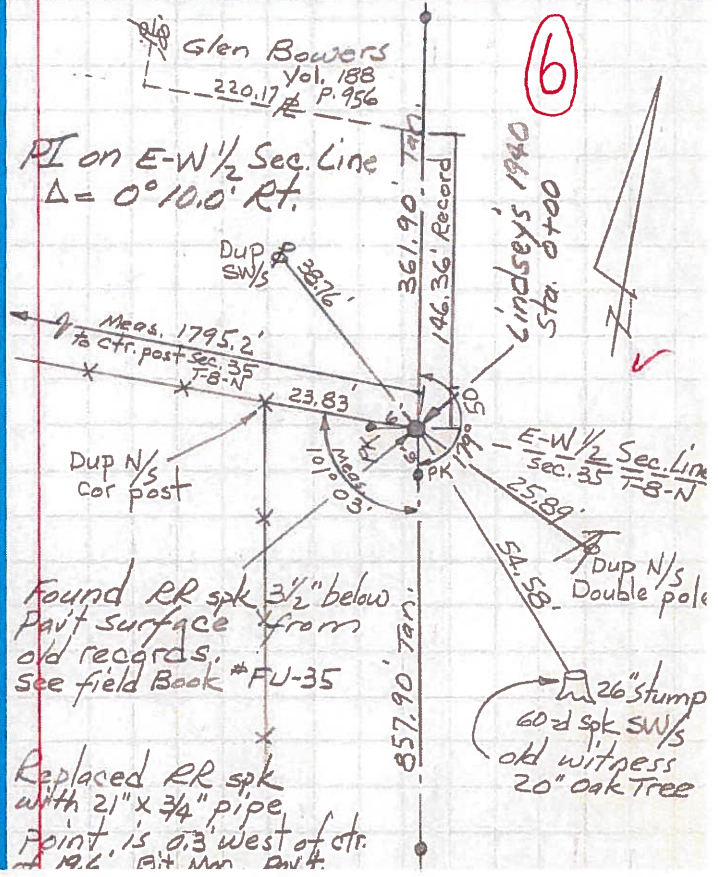 6
Glen Bowers
Vol. 188
P. 956
220.17'
PI on E-W 1/2 Sec. Line
Δ = 0° 10.0' Rt.
361.90' Tan.
146.36' Record
Lindsey's 1940
Sta. 0+00
Dup
SW/s
38.76'
Meas. 1795.2'
to ctr. post Sec. 35
T-8-N
23.83'
6'
PK
6'
PK
179° 50
Meas.
101° 03'
Dup N/s
Cor post
E-W 1/2 Sec. Line
Sec. 35 T-8-N
25.89'
Dup N/s
Double pole
54.58'
Found RR spk 3 1/2" below
Pav't surface from
old records.
See field Book #FU-35
857.90' Tan.
26" stump
60-d spk SW/s
old witness
20" Oak Tree
Replaced RR spk
with 21" x 3/4" pipe
Point is 0.3' west of ctr.
of 19.6' Bit. Mac. Pav't.